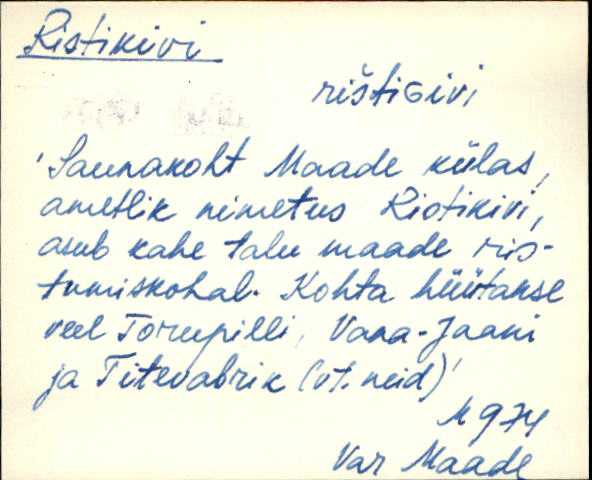 Ristikivi
rištiɢivi
'Saunakoht Maade külas,
ametlik nimetus Ristikivi,
asub kahe talu maade ris-
tumiskohal. Kohta hüütakse
veel Torupilli, Vana-Jaani
ja Titevabrik (vt. neid)'
M 974
Var Maade